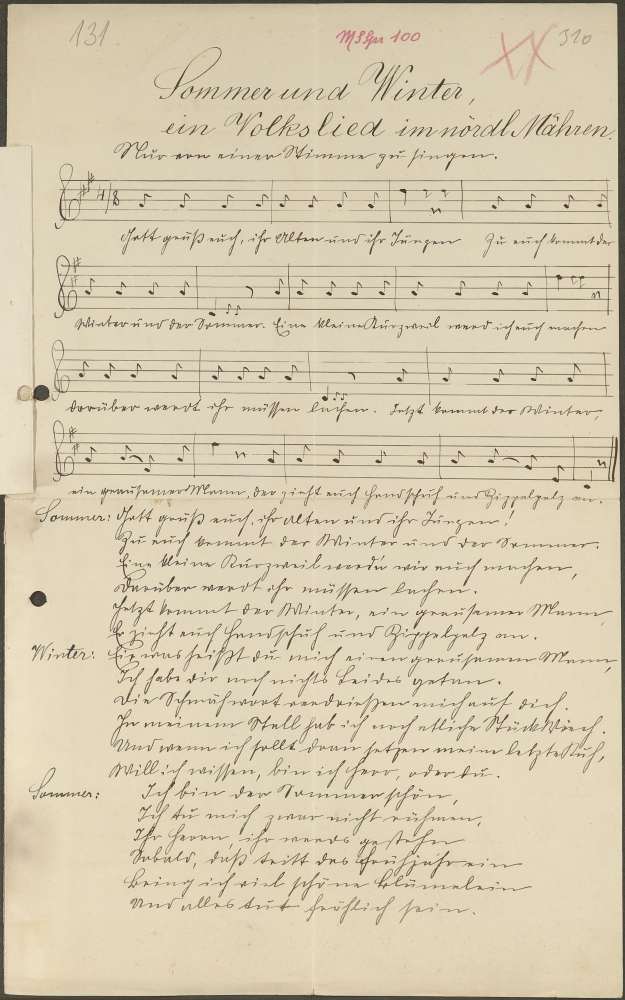 131
310
Sommer und Winter,
ein Volkslied im nördl. Mähren.
Nur von einer Stimme zu singen.
4/8
Gott grüß euch, ihr Alten und ihr Jungen Zu euch kommt der
Winter und der Sommer. Eine kleine Kurzweil werd ich euch machen
darüber werdt ihr müssen lachen. Jetzt kommt der Winter,
ein grausamer Mann, der zieht euch Handschuh und Zippelpelz an.
Sommer: Gott grüß euch, ihr Alten und ihr Jungen!
Zu euch kommt der Winter und der Sommer.
Eine kleine Kurzweil werdn wir euch machen,
Darüber werdt ihr müssen lachen.
Jetzt kommt der Winter, ein grausamer Mann,
Er zieht euch Handschuh und Zippelpelz an.
Winter: Ei, was heißt du mich einen grausamen Mann,
Ich habe dir noch nichts Leides getan.
Die Schmähwort verdrießen mich auf dich.
In meinem Stall hab ich noch etliche Stück Viech.
Und wenn ich sollt dran setzen meine letzte Kuh,
Will ich wissen, bin ich Herr, oder du.
Sommer: Ich bin der Sommer schön,
Ich tu mich zwar nicht rühmen,
Ihr Herrn, ihr werds gestehn
Sobald, daß tritt das Frühjahr ein
Bring ich viel schöne Blümelein
Und alles tut fröhlich sein.